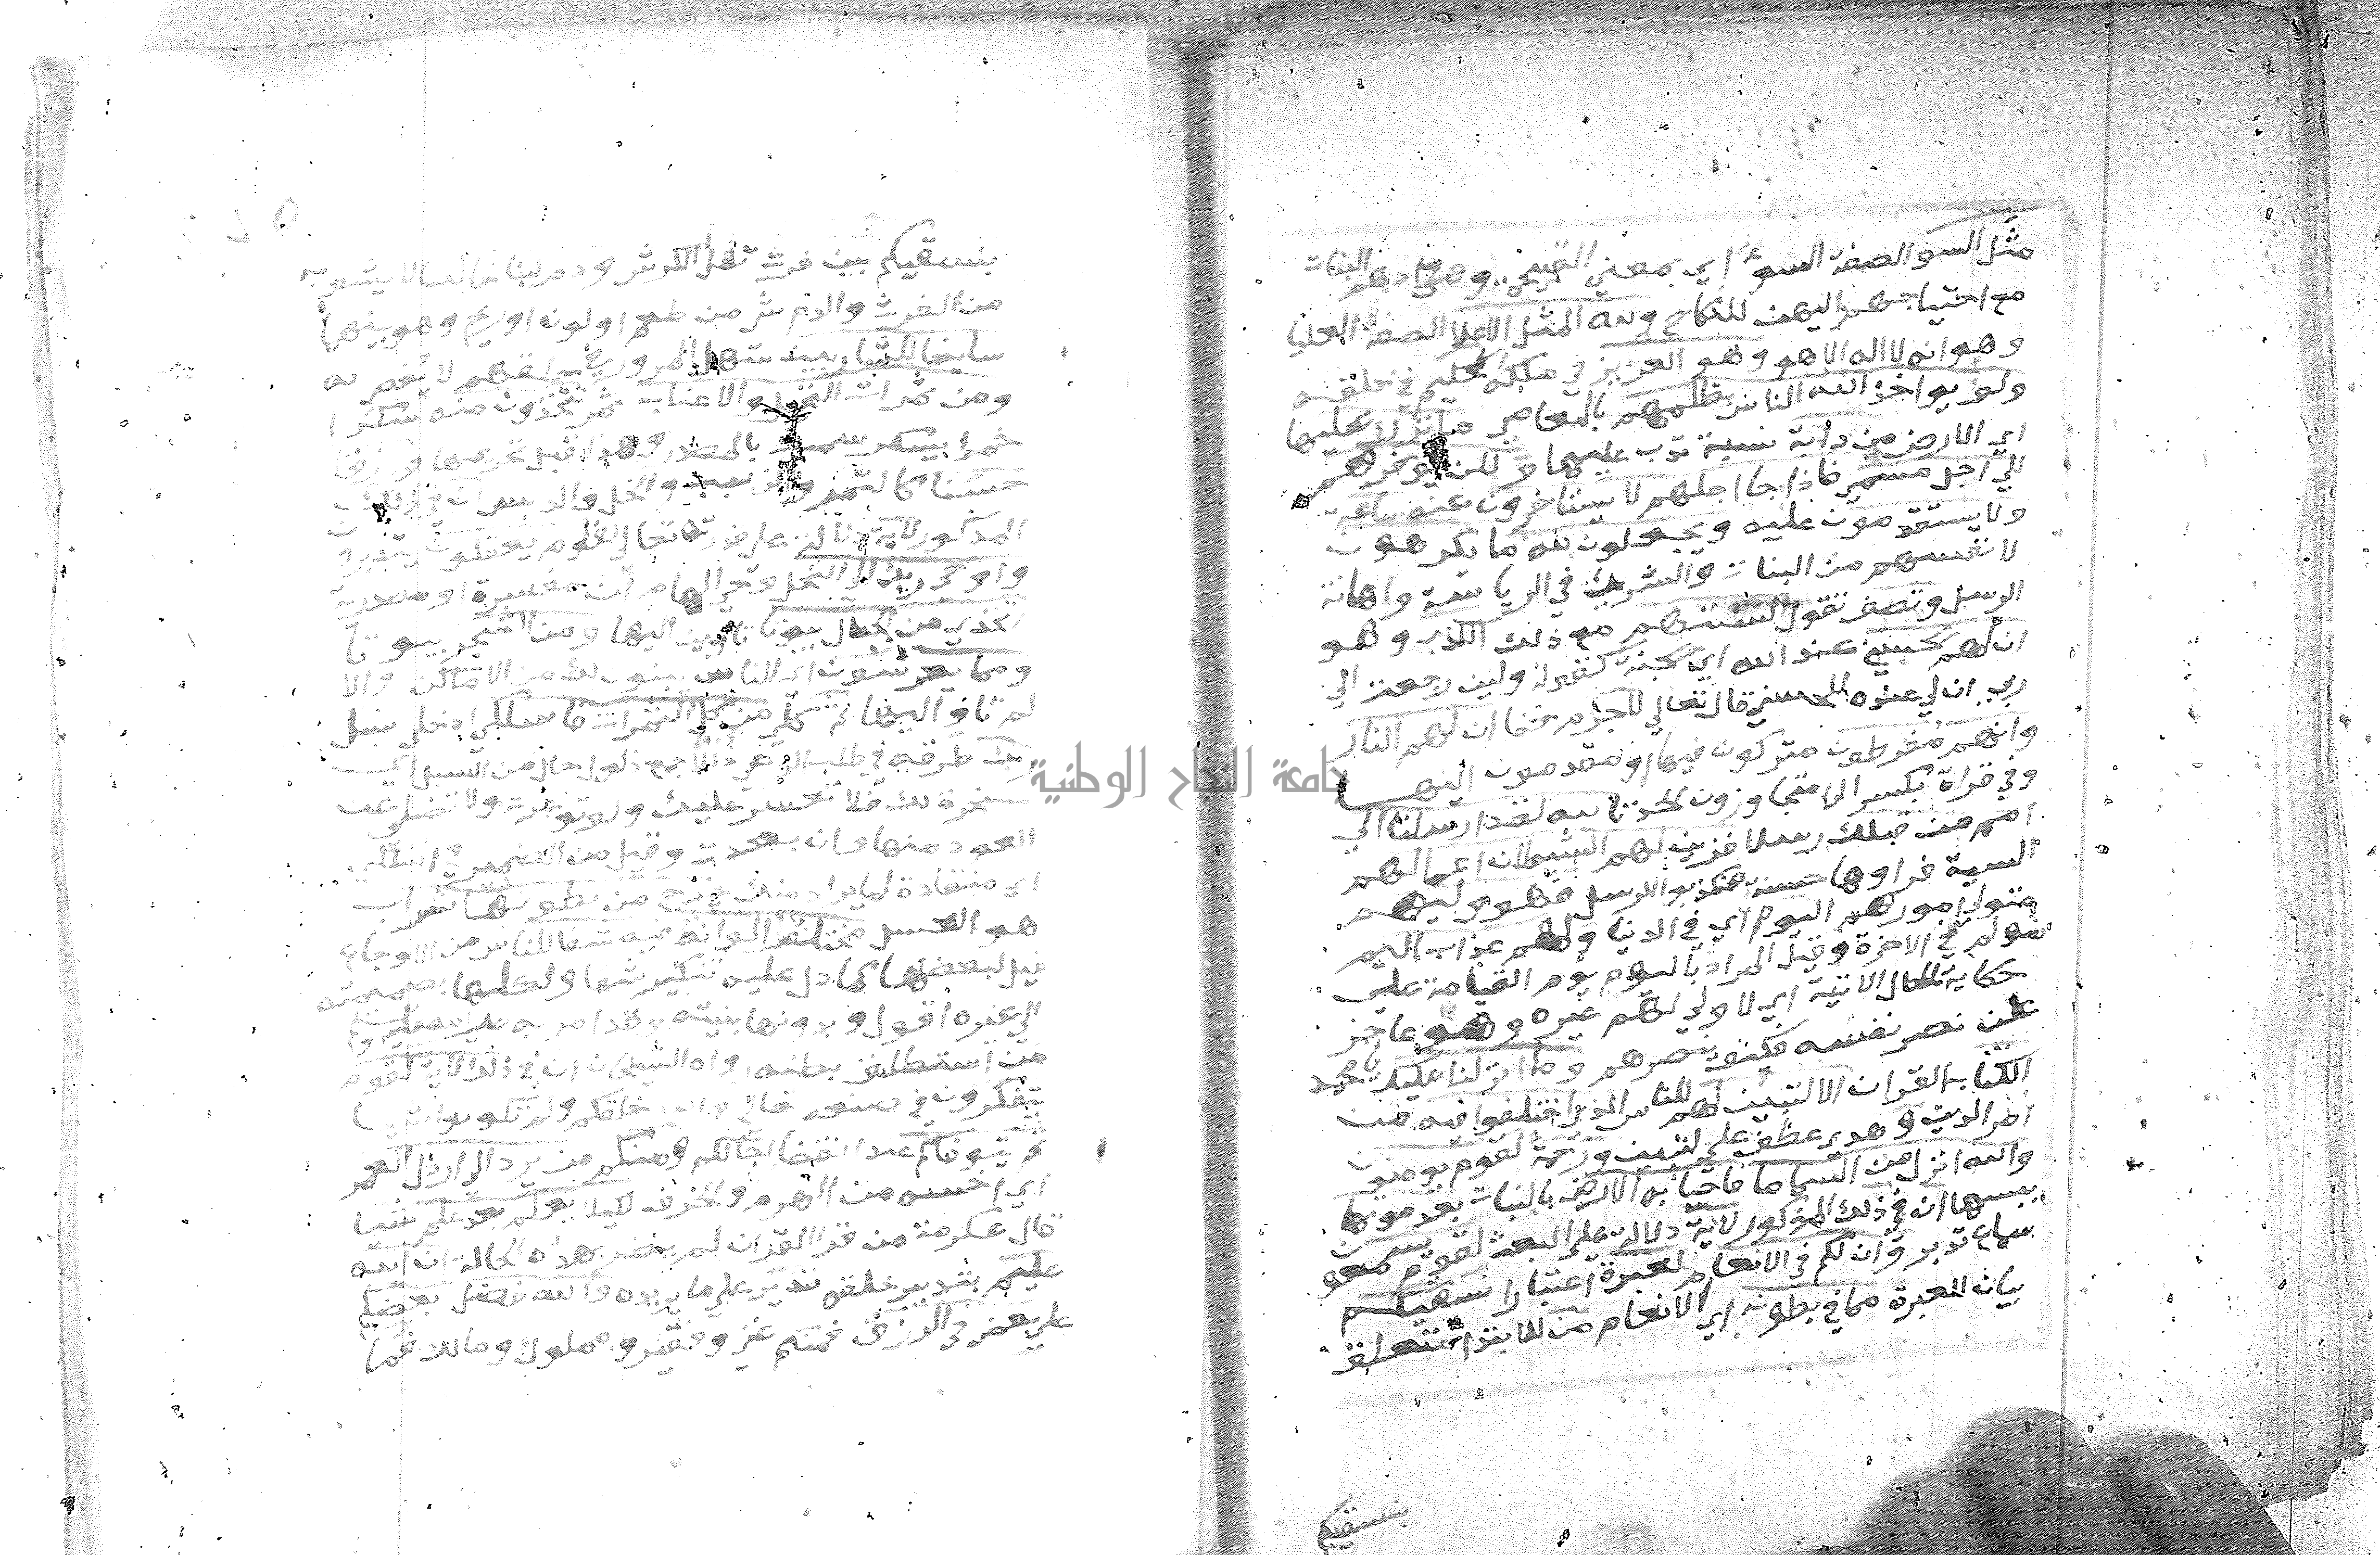 مثل السو الصفة السوء اي بمعني القبيحة وهي وادهم البنات
مع احتياجهم اليهن للنكاح ولله المثل الاعلا الصفة العليا
وهو انه لا اله الا هو وهو العزيز في ملكه الحكيم في خلقه
ولو يواخذ الله الناس بظلمهم بالمعاصي ما ترك عليها
اي الارض من دابة نسمة تدب عليها ولكن يوخرهم
الي اجل مسمي فاذا جا اجلهم لا يستاخرون عنه ساعة
ولا يستقدمون عليه ويجعلون لله ما يكرهون
لانفسهم من البنات والشريك في الرياسة واهانة
الرسل وتصف تقول السنتهم مع ذلك الكذب وهو
ان لهم الحسني عند الله اي الجنة كقوله ولين رجعت الي
ربي ان لي عنده للحسني قال تعالي لا جرم حقا ان لهم النار
وانهم مفرطون متركون فيها او مقدمون اليها
وفي قراة بكسر الرا متجاوزون الحد تالله لقد ارسلنا الي
امم من قبلك رسلا فزين لهم الشيطان اعمالهم
السية فراوها حسنة فكذبوا الرسل فهو وليهم
متولي امورهم اليوم اي في الدنيا ولهم عذاب اليم
مولم في الاخرة وقيل المراد باليوم يوم القيامة علي
حكاية الحال الاتية اي لا ولي لهم غيره وهو عاجز
عن نصر نفسه فكيف ينصرهم وما انزلنا عليك يا محمد
الكتاب القران الا لتبين لهم للناس الذي اختلفوا فيه من
امر الدين وهدي عطف علي لتبين ورحمة لقوم يومنون
والله انزل من السما ما فاحيا به الارض بالنبات بعد موتها
يبسها ان في ذلك المذكور لاية دلالة علي البعث لقوم يسمعون
سماع تدبر وان لكم في الانعام لعبرة اعتبارا نسقيكم
بيان للعبرة مما في بطونه اي الانعام من للابتدا متعلقة
بنسقيكم
بنسقيكم بين فرث ثفل الكرش ودم لبنا خالصا لا يشوبه
من الفرث والدم شي من طعم او لون او ريح وهو بينهما
سايغا للشاربين سهل المرور في حلقهم لا يغص به
ومن ثمرات النخيل والاعناب ثمر تتخذون منه سكرا
خمرا يسكر سميت بالمصدر وهذا قبل تحريمها ورزقا
حسنا كالتمر والزبيب والخل والدبس ان في ذلك
المذكور لاية دالة علي قدرته تعالي لقوم يعقلون يتدبرون
واوحي ربك الي النحل وحي الهام ان مفسرة او مصدرية
اتخذي من الجبال بيوتا تاوين اليها ومن الشجر بيوتا
ومما يعرشون اي الناس يبنون لك من الاماكن والا
لم تاو اليها ثم كلي من كل الثمرات فاسلكي ادخلي سبل
ربك طرقه في طلب المرعي ذللا جمع ذلول حال من السبل اي
مسخرة لك فلا تعسر عليك ولو توعرت ولا تضلي عن
العود منها وان بعدت وقيل من الضمير في اسلكي
اي منقادة لما يراد منك يخرج من بطونها شراب
هو العسل مختلف الوانه فيه شفا للناس من الاوجاع
قيل لبعضها كما دل عليه تنكير شفا ولكلها بضميمته
الي غيره اقول وبدونها بنيته وقد امر به صلي الله عليه وسلم
من استطلق بطنه رواه الشيخان ان في ذلك لاية لقوم
يتفكرون في صنعه تعالي والله خلقكم ولم تكونوا شيا
ثم يتوفاكم عند انقضا اجالكم ومنكم من يرد الي ارذل العمر
اي اخسه من الهرم والخرف لكيلا يعلم بعد علم شيا
قال عكرمة من قرا القران لم يصر بهذه الحالة ان الله
عليم بتدبير خلقه قدير علي ما يريده والله فضل بعضكم
علي بعض في الرزق فمنكم غني وفقير ومملوك ومالك فما
جامعة النجاح الوطنية